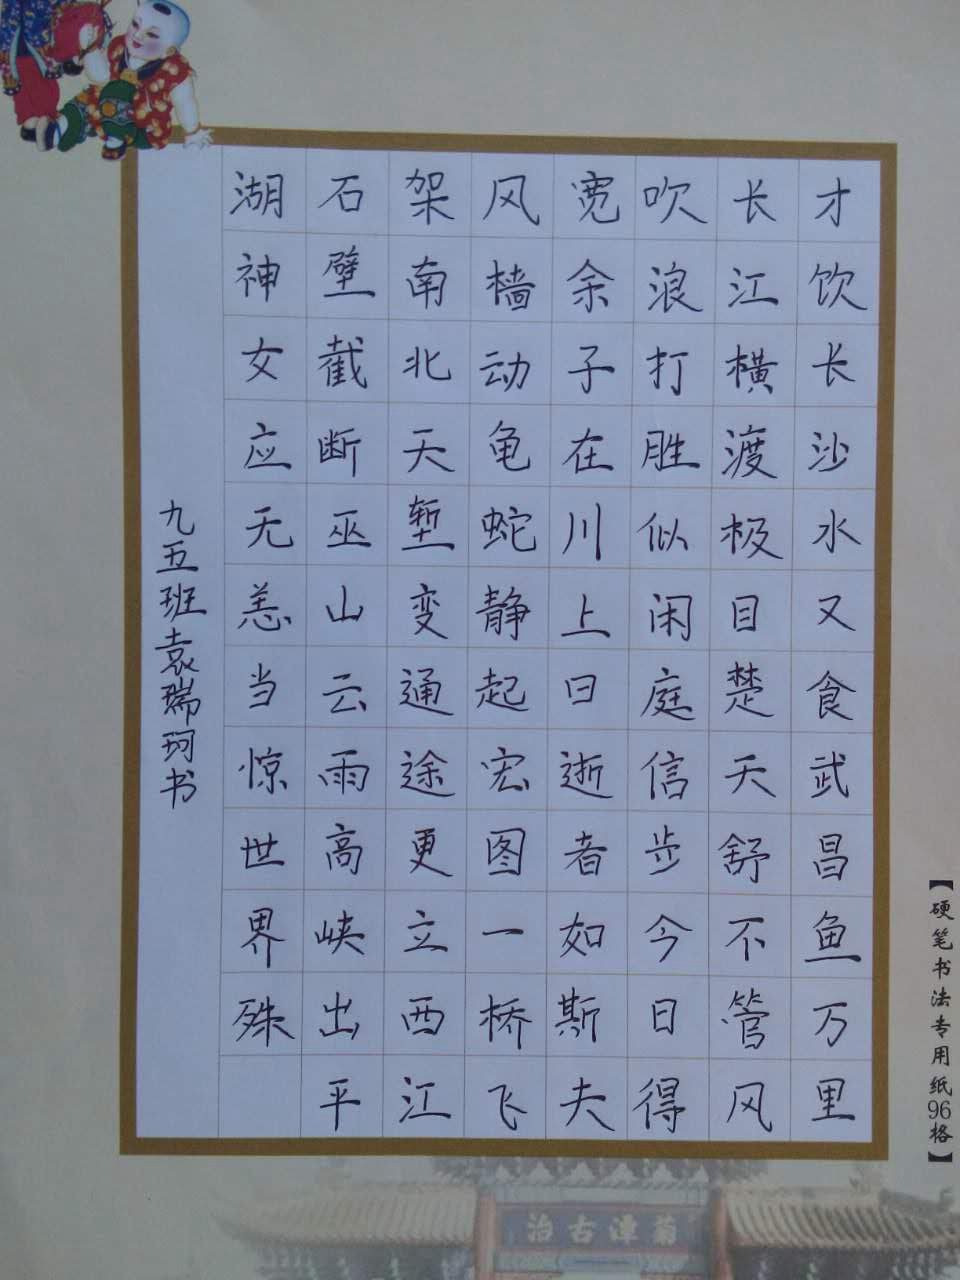 才饮长沙水又食武昌鱼万里
长江横渡极目楚天舒不管风
吹浪打胜似闲庭信步今日得
宽余子在川上曰逝者如斯夫
风樯动龟蛇静起宏图一桥飞
架南北天堑变通途更立西江
石壁截断巫山云雨高峡出平
湖神女应无恙当惊世界殊
九五班袁瑞珂书
【硬笔书法专用纸96格】
菊潭古治